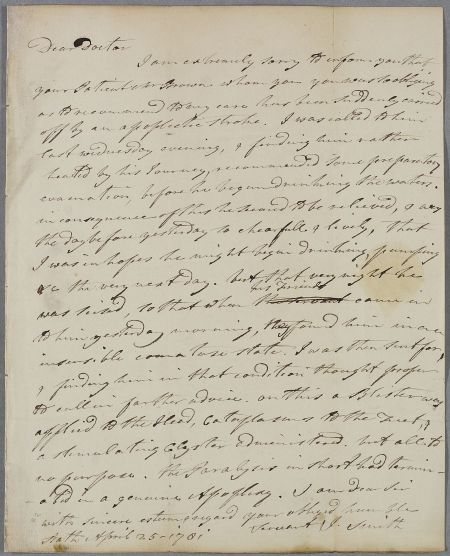 Dear Doctor
I am extremely sorry to inform you that
your Patient Mr Brown whom you was so obliging
as to recommend to my care has been suddenly carried
off by an apoplectic stroke. I was called to him
last wednesday evening, & finding him rather
heated by his Journey, recommended some preparatory
evacuation, before he began drinking the waters.
in consequence of this he seemed to be relieved, & was
the day before yesterday so chearfull & lively, that
I was in hopes he might begin drinking, pumping
&c the very next day. but that very night he
was seised so that when his friends came in
to him yesterday morning, they found him in an
insensible comatose state. I was then sent for,
& finding him in that condition thought proper
to call in farther advice. on this a Blister was
applied to the Head, Cataplasms to the Feet, &
a stimulating Clyster administered. but all to
no purpose. the Paralysis in short had termin-
ated in a genuine Apoplexy. I am dear Sir
with sincere esteem & regard your obliged humble
Bath April 25 - 1781 Servant J. Smith